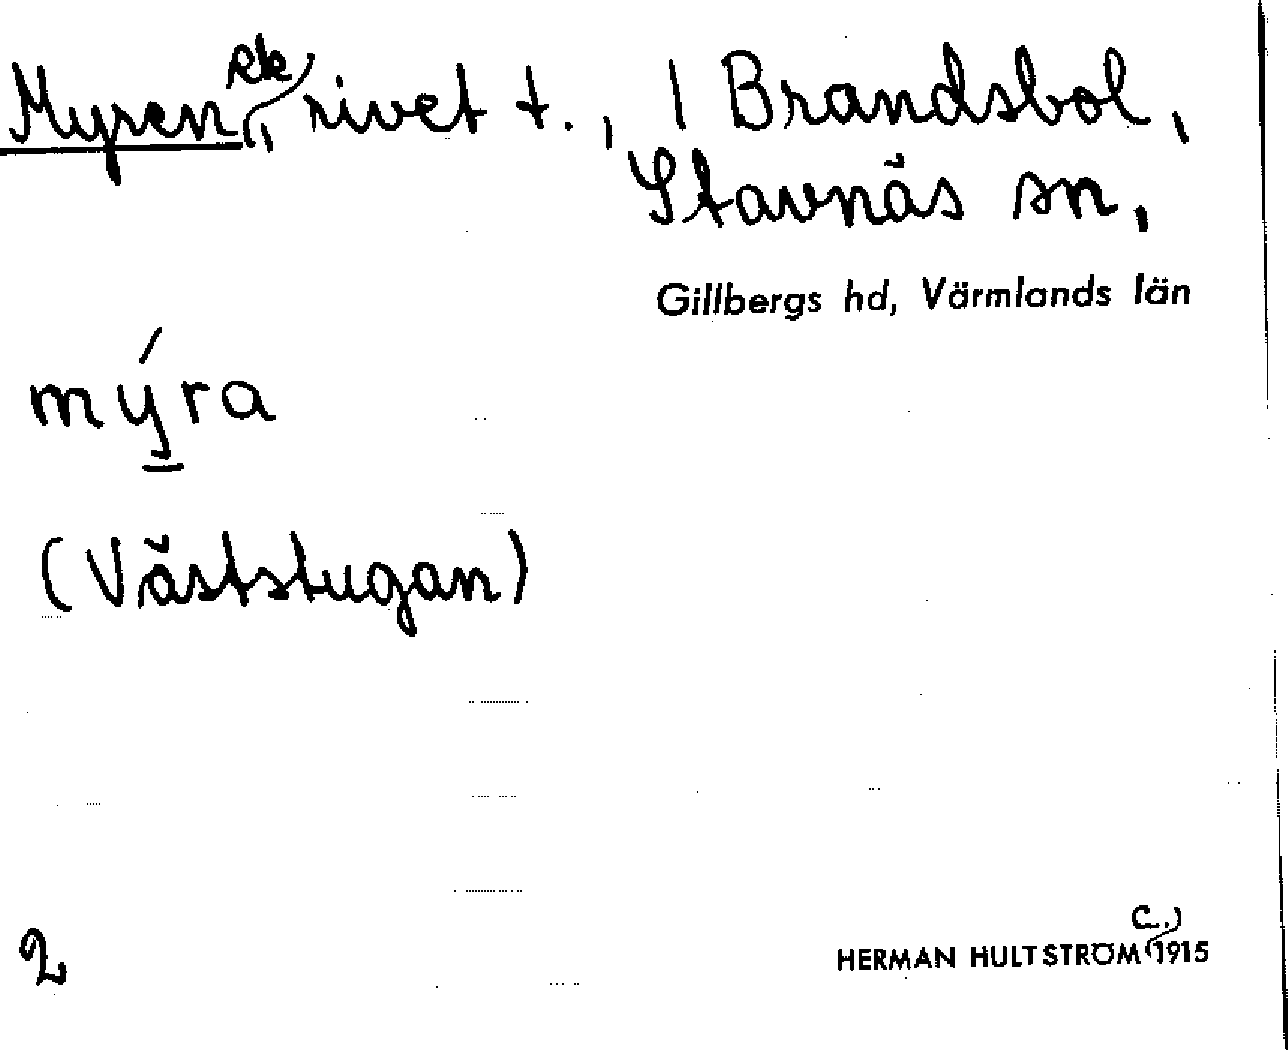 Myren, rivet t., 1 Brandsbol,
Stavnäs sn,
Gillbergs hd, Värmlands län
mýra
(Väststugan)
2
HERMAN HULTSTRÖM C. 1915